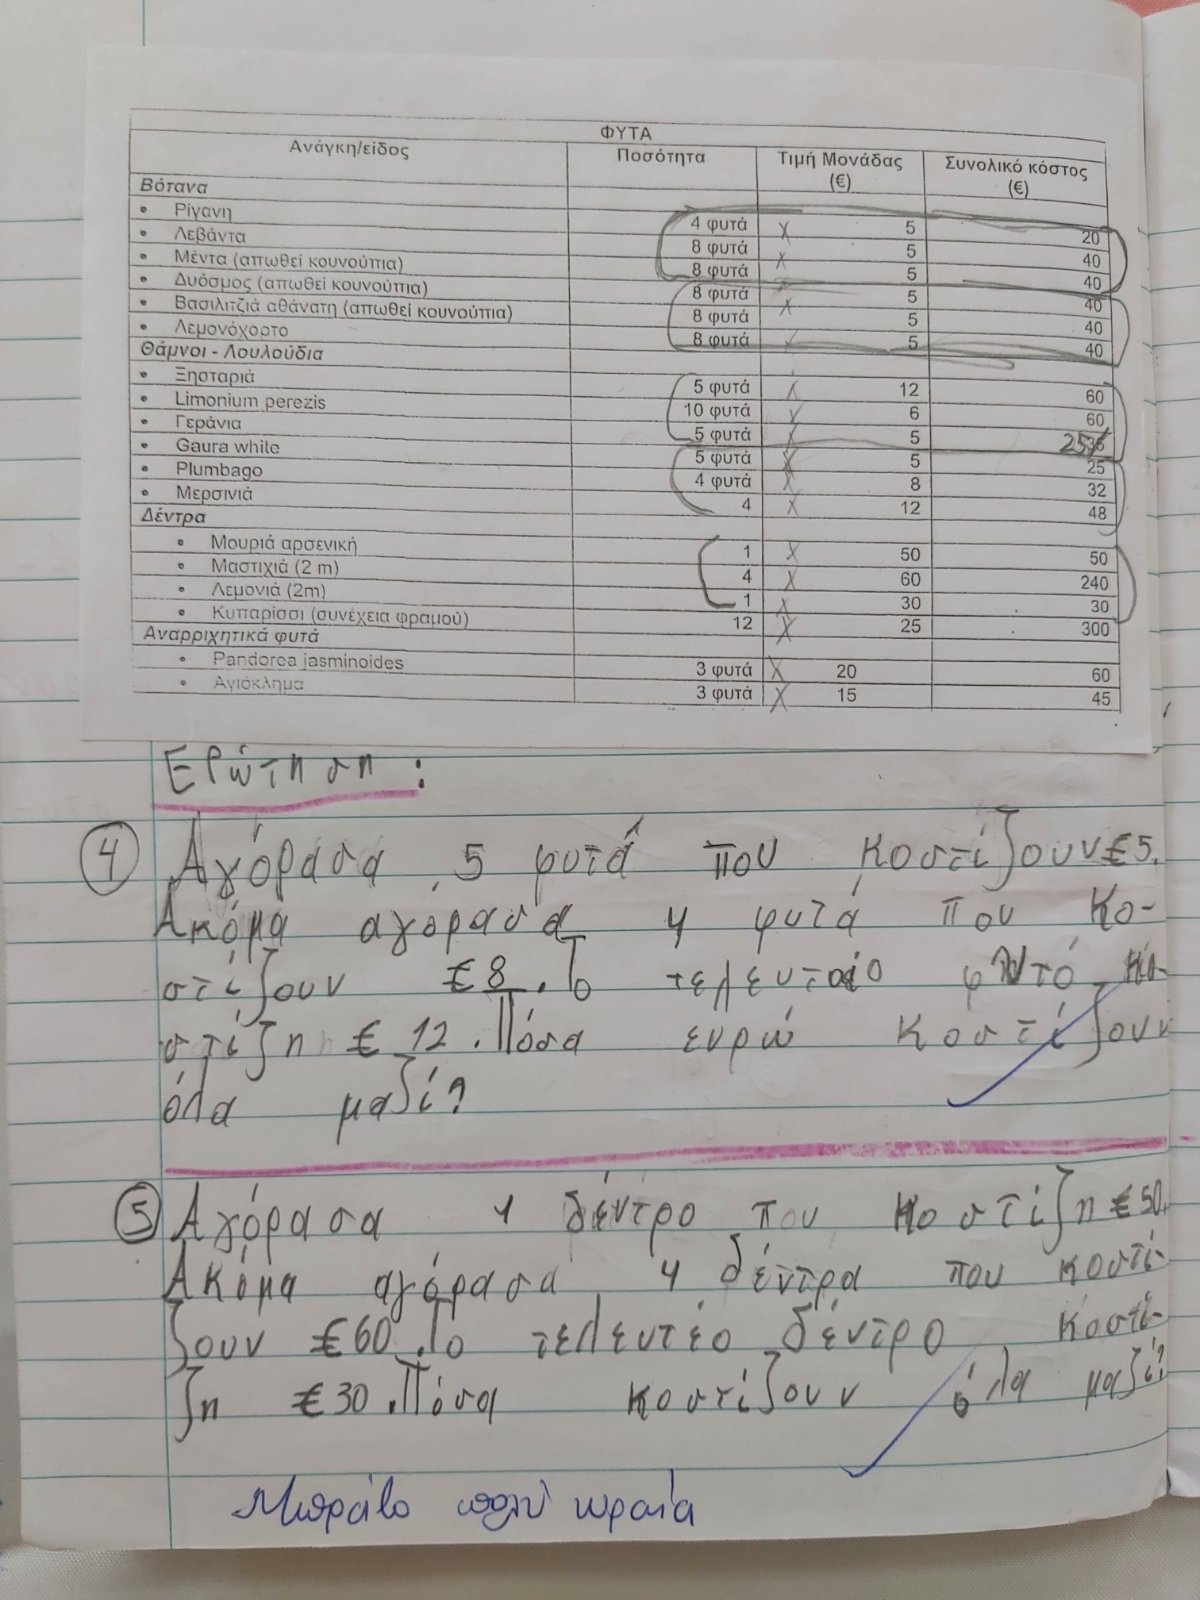 ΦΥΤΑ
Ανάγκη/είδος Ποσότητα Τιμή Μονάδας (€) Συνολικό κόστος (€)
Βότανα
• Ρίγανη 4 φυτά X 5 20
• Λεβάντα 8 φυτά X 5 40
• Μέντα (απωθεί κουνούπια) 8 φυτά X 5 40
• Δυόσμος (απωθεί κουνούπια) 8 φυτά X 5 40
• Βασιλιτζιά αθάνατη (απωθεί κουνούπια) 8 φυτά 5 40
• Λεμονόχορτο 8 φυτά X 5 40
Θάμνοι - Λουλούδια
• Ξησταριά 5 φυτά X 12 60
• Limonium perezis 10 φυτά X 6 60
• Γεράνια 5 φυτά X 5 25
• Gaura white 5 φυτά X 5 25
• Plumbago 4 φυτά X 8 32
• Μερσινιά 4 X 12 48
Δέντρα
• Μουριά αρσενική 1 X 50 50
• Μαστιχιά (2 m) 4 X 60 240
• Λεμονιά (2m) 1 X 30 30
• Κυπαρίσσι (συνέχεια φραμού) 12 X 25 300
Αναρριχητικά φυτά
• Pandorea jasminoides 3 φυτά X 20 60
• Αγιόκλημα 3 φυτά X 15 45
Ερώτηση:
4 Αγόρασα 5 φυτά που κοστίζουν €5.
Ακόμα αγόρασα 4 φυτά που κο-
στίζουν €8. Το τελευταίο φυτό κο-
στίζη € 12. Πόσα ευρώ κοστίζουν
όλα μαζί?
5 Αγόρασα 1 δέντρο που κοστίζη €50.
Ακόμα αγόρασα 4 δέντρα που κοστί-
ζουν €60. Το τελευτέο δέντρο κοστί-
ζη €30. Πόσα κοστίζουν όλα μαζί?
Μπράβο πολύ ωραία